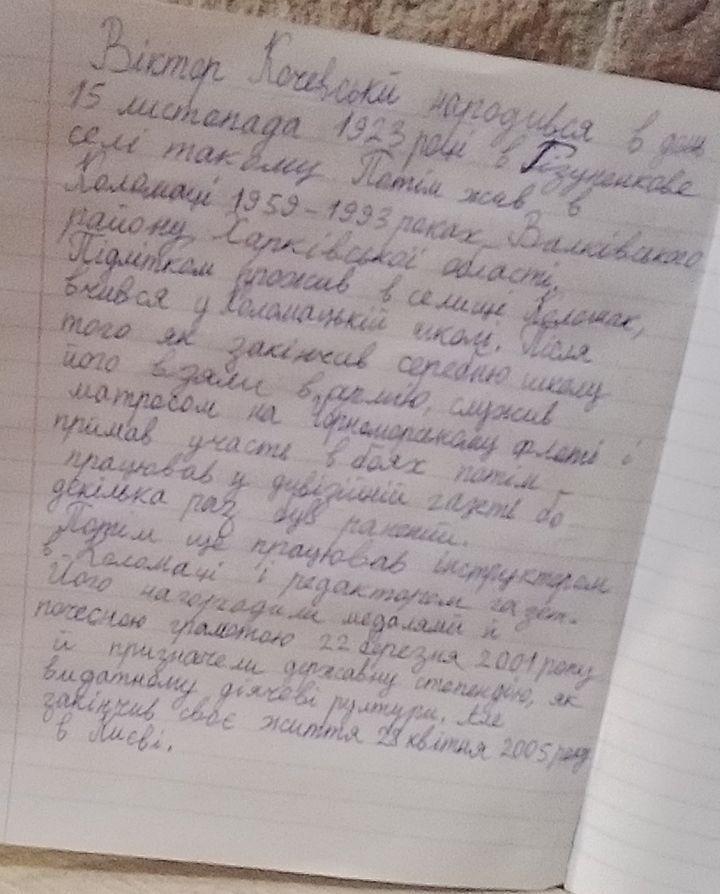 Віктор Кочевський народився в день
15 листопада 1923 році в Гізуненкове
селі такому Потім жив в
Коломаці 1959-1993 роках Валківського
району Харківської області.
Підлітком прожив в селищі Коломак,
вчився у Коломацькій школі. Після
того як закінчив середню школу
його взяли в армію, служив
матросом на Чорноморському флоті і
приймав участь в боях потім
працював у дивізійній газеті бо
декілька раз був ранений.
Потим ще працював інструктором
в Коломаці і редактором газет.
Його нагородили медалями й
почесною грамотою 22 березня 2001 року
й призначели державну степендію, як
видатному діячеві культури. Але
закінчив своє життя 29 квітня 2005 року
в Києві.